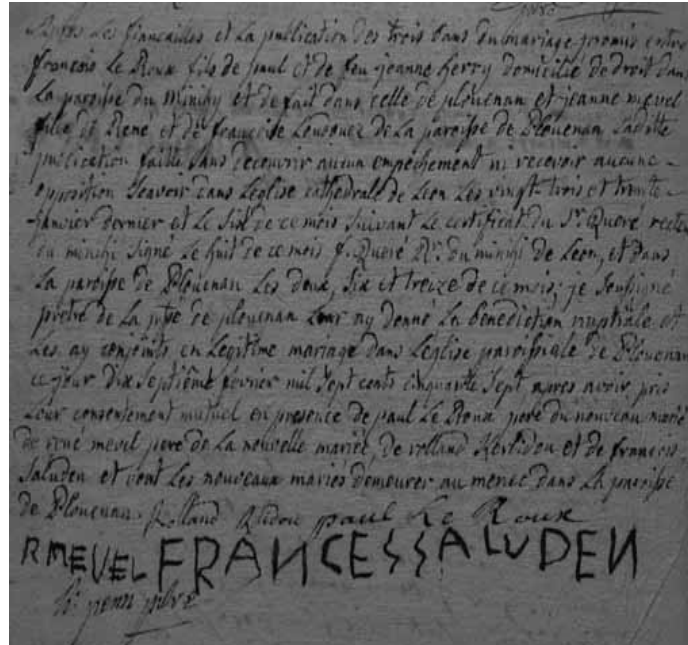 Apres Les fiancailles et La publication des trois bans du mariage promis entre
francois Le Roux fils de paul et de feu jeanne herry domicilié de droit dans
La paroisse du Minihy et de fait dans celle de plouenan et jeanne mevel
fille de René et de francoise de La paroisse de Plouenan Ladotte
publication faitte sans decouvrir aucun empechement ni recevoir aucune
opposition scavoir dans Leglise cathedrale de Leon Les vingt trois et trente
janvier dernier et Le six de ce mois suivant Le certificat du Sr. Queré recteur
du minihi signé Le huit de ce mois f. Queré Rr. du minihi de Leon, et dans
La paroisse de Plouenan Les deux, six et treize de ce mois; je soussigné
pretre de La psse de plouenan Leur ay donné La benediction nuptiale et
Les ay conjoints en Legitime mariage dans Leglise paroissiale de Plouenan
ce jour dix septième fevrier mil sept cents cinquante sept, apres avoir pris
Leur consentement mutuel en presence de paul Le Roux pere du nouveau marié
de rené mevel pere de La nouvelle mariée, de rolland Kerlidou et de francois
Saluden et vont Les nouveaux mariés demeurer au menec dans La paroisse
de Plouenan. Rolland paul Le Roux
R MEVEL FRANCES SALUDEN
penn ptre